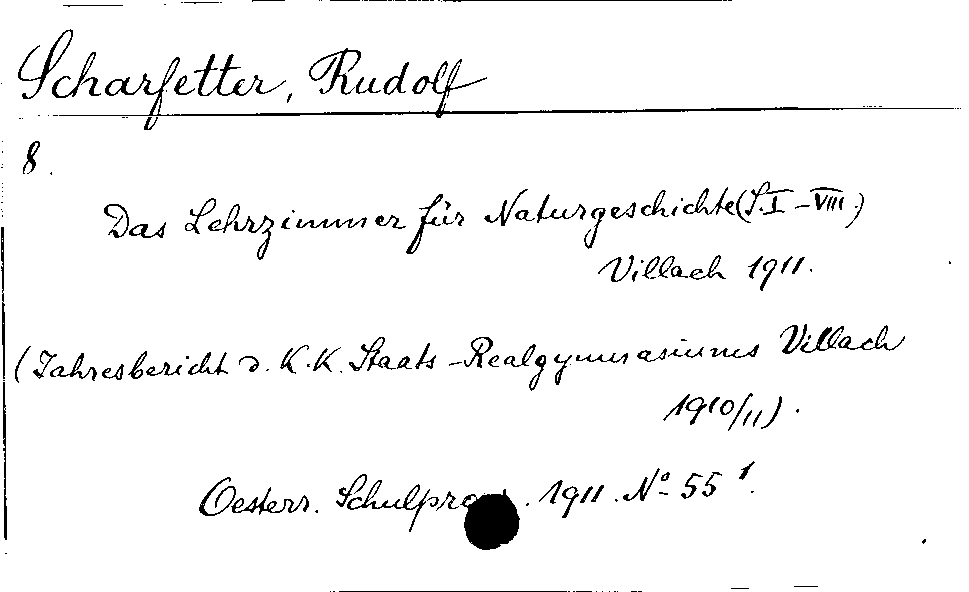 Scharfetter, Rudolf
8.
Das Lehrzimmer für Naturgeschichte (S. I-VIII.)
Villach 1911.
(Jahresbericht d. K.K. Staats-Realgymnasiums Villach
1910/11).
Oesterr. 1911. No 55 1.